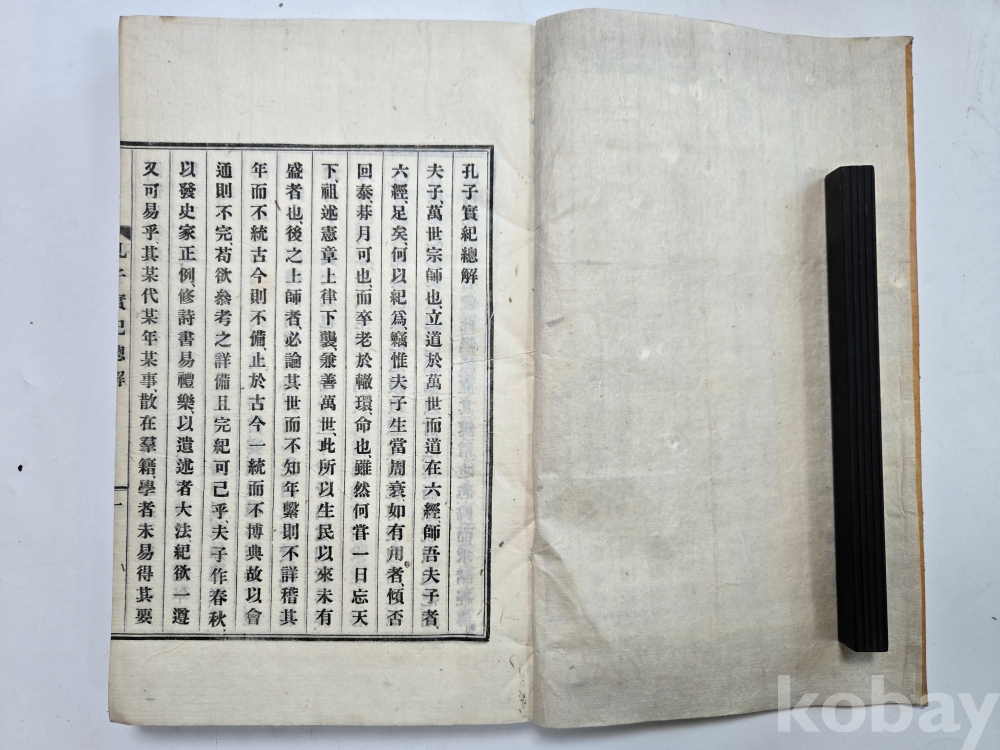 孔子實紀總解
夫子、萬世宗師也、立道於萬世而道在六經、師吾夫子者、
六經、足矣、何以紀爲、竊惟夫子生當周衰、如有用者、傾否
回泰、朞月可也、而卒老於轍環、命也、雖然何嘗一日忘天
下、祖述憲章上律下襲、兼善萬世、此所以生民以來未有
盛者也、後之上師者、必論其世而不知年繫則不詳、稽其
年而不統古今則不備、止於古今一統而不博典故以會
通則不完、苟欲叅考之詳備且完紀可已乎、夫子作春秋、
以發史家正例、修詩書易禮樂、以遺述者大法、紀欲一遵
又可易乎、其某代某年某事、散在羣籍、學者未易得其要
孔子實紀總解
一
kobay